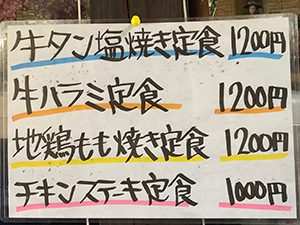 牛タン塩焼き定食 1200円
牛ハラミ定食 1200円
地鶏もも焼き定食 1200円
チキンステーキ定食 1000円